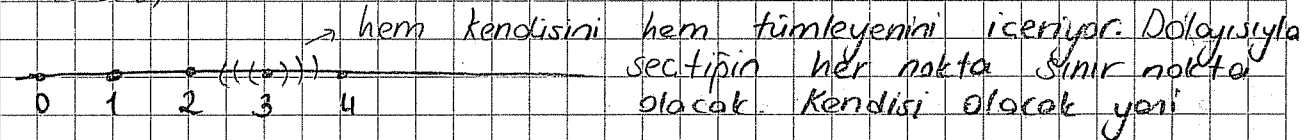 hem kendisini hem tümleyenini içeriyor. Dolayısıyla
seçtiğin her nokta sınır nokta
0 1 2 (((3))) 4 olacak. Kendisi olacak yani